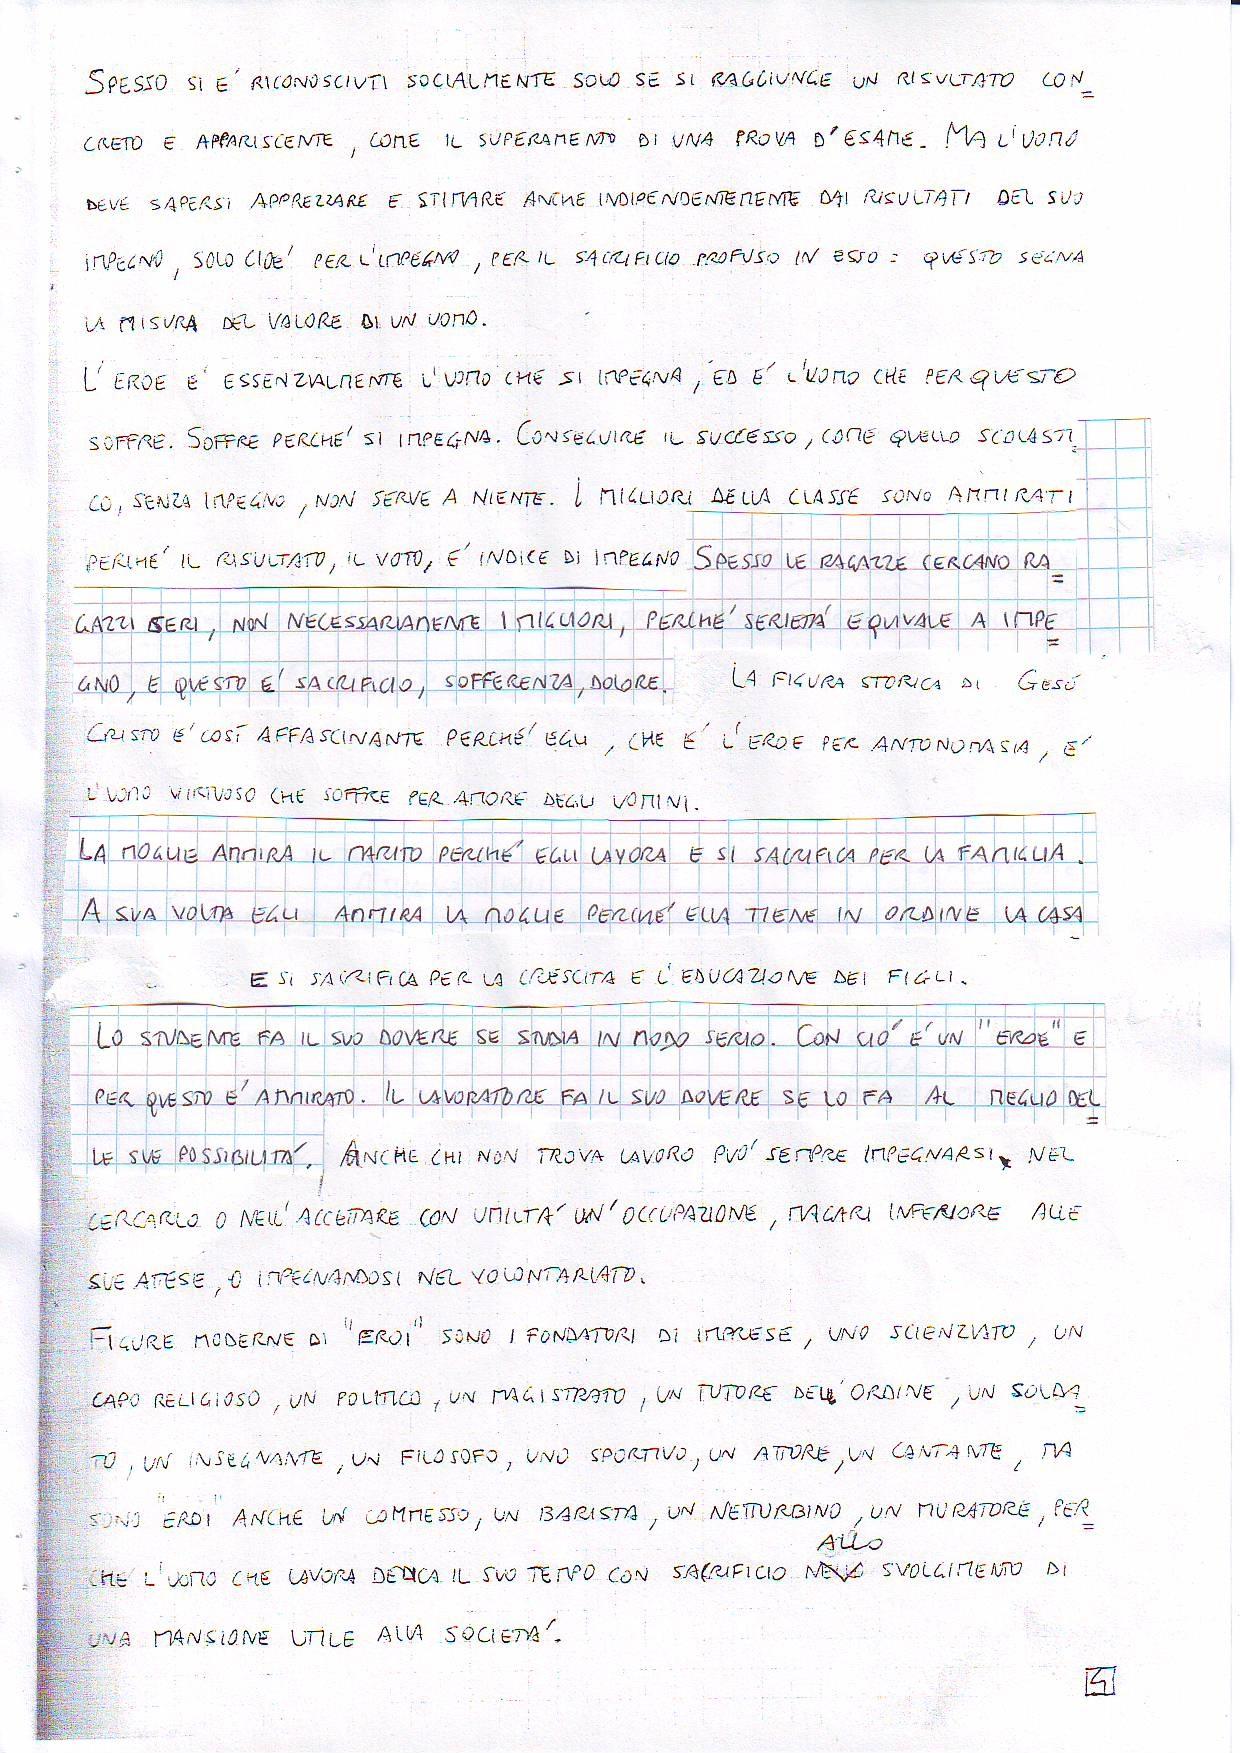 SPESSO SI E' RICONOSCIUTI SOCIALMENTE SOLO SE SI RAGGIUNGE UN RISULTATO CON=
CRETO E APPARISCENTE, COME IL SUPERAMENTO DI UNA PROVA D'ESAME. MA L'UOMO
DEVE SAPERSI APPREZZARE E STIMARE ANCHE INDIPENDENTEMENTE DAI RISULTATI DEL SUO
IMPEGNO, SOLO CIOE' PER L'IMPEGNO, PER IL SACRIFICIO PROFUSO IN ESSO: QUESTO SEGNA
LA MISURA DEL VALORE DI UN UOMO.
L'EROE E' ESSENZIALMENTE L'UOMO CHE SI IMPEGNA, ED E' L'UOMO CHE PER QUESTO
SOFFRE. SOFFRE PERCHE' SI IMPEGNA. CONSEGUIRE IL SUCCESSO, COME QUELLO SCOLASTI
CO, SENZA IMPEGNO, NON SERVE A NIENTE. I MIGLIORI DELLA CLASSE SONO AMMIRATI
PERCHE' IL RISULTATO, IL VOTO, E' INDICE DI IMPEGNO SPESSO LE RAGAZZE CERCANO RA=
GAZZI SERI, NON NECESSARIAMENTE I MIGLIORI, PERCHE' SERIETA' EQUIVALE A IMPE=
GNO, E QUESTO E' SACRIFICIO, SOFFERENZA, DOLORE. LA FIGURA STORICA DI GESÚ
CRISTO E' COSÍ AFFASCINANTE PERCHE' EGLI, CHE E' L'EROE PER ANTONOMASIA, E'
L'UOMO VIRTUOSO CHE SOFFRE PER AMORE DEGLI UOMINI.
LA MOGLIE AMMIRA IL MARITO PERCHE' EGLI LAVORA E SI SACRIFICA PER LA FAMIGLIA.
A SUA VOLTA EGLI AMMIRA LA MOGLIE PERCHE' ELLA TIENE IN ORDINE LA CASA
E SI SACRIFICA PER LA CRESCITA E L'EDUCAZIONE DEI FIGLI.
LO STUDENTE FA IL SUO DOVERE SE STUDIA IN MODO SERIO. CON CIO' E' UN "EROE" E
PER QUESTO E' AMMIRATO. IL LAVORATORE FA IL SUO DOVERE SE LO FA AL MEGLIO DEL=
LE SUE POSSIBILITA'. ANCHE CHI NON TROVA LAVORO PUO' SEMPRE IMPEGNARSI NEL
CERCARLO O NELL'ACCETTARE CON UMILTA' UN'OCCUPAZIONE, MAGARI INFERIORE ALLE
SUE ATTESE, O IMPEGNANDOSI NEL VOLONTARIATO.
FIGURE MODERNE DI "EROI" SONO I FONDATORI DI IMPRESE, UNO SCIENZIATO, UN
CAPO RELIGIOSO, UN POLITICO, UN MAGISTRATO, UN TUTORE DELL'ORDINE, UN SOLDA=
TO, UN INSEGNANTE, UN FILOSOFO, UNO SPORTIVO, UN ATTORE, UN CANTANTE, MA
SONO "EROI" ANCHE UN COMMESSO, UN BARISTA, UN NETTURBINO, UN MURATORE, PER=
ALLO
CHE L'UOMO CHE LAVORA DEDICA IL SUO TEMPO CON SACRIFICIO SVOLGIMENTO DI
UNA MANSIONE UTILE ALLA SOCIETA'.
5